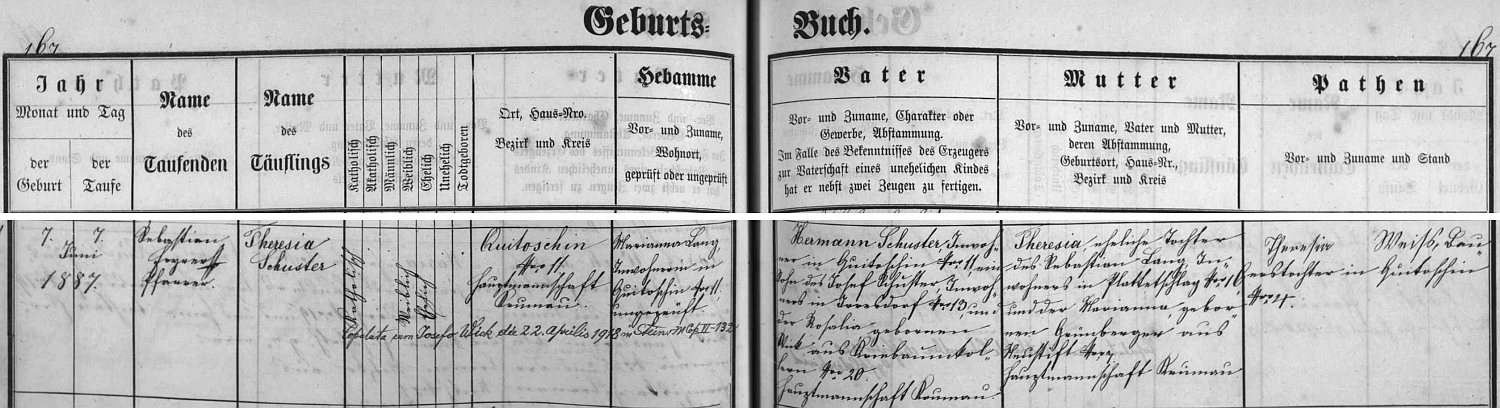 Geburts-
Buch.
167
167
Jahr
Monat und Tag
der
Geburt
der
Taufe
Name
des
Taufenden
Name
des
Täuflings
Katholisch
Akatholisch
Männlich
Weiblich
Ehelich
Unehelich
Todtgeboren
Ort, Haus-Nro.
Bezirk und Kreis
Hebamme
Vor- und Zuname,
Wohnort,
geprüft oder ungeprüft
Vater
Vor- und Zuname, Charakter oder
Gewerbe, Abstammung.
Im Falle des Bekenntnisses des Erzeugers
zur Vaterschaft eines unehelichen Kindes
hat er nebst zwei Zeugen zu fertigen.
Mutter
Vor- und Zuname, Vater und Mutter,
deren Abstammung,
Geburtsort, Haus-Nr.,
Bezirk und Kreis
Pathen
Vor- und Zuname und Stand
7. 7.
Juni
1887.
Sebastian
Pfarrer.
Theresia
Schuster
Katholisch
Weiblich
Ehelich
Quitoschin
Nro 11.
Hauptmannschaft
Krumau.
Marianna Lang
Inwohnerin in
Quitoschin Nro 11.
ungeprüft.
Copulata cum Josefo Wick die 22. Aprilis 1918 in Stein
Hermann Schuster, Inwoh-
ner in Quitoschin Nro 11 ein
Sohn des Josef Schuster, Inwoh-
ners in Nro 13 und
der Rosalia gebornen
aus
Nro 20.
Hauptmannschaft Krumau.
Theresia eheliche Tochter
des Sebastian Lang, In-
wohners in Plattetschlag Nro 16
und der Marianna gebor-
nen Grünberger aus
Neustift
Hauptmannschaft Krumau
Theresia Weiß, Bau-
erstochter in Quitoschin
Nro 21.